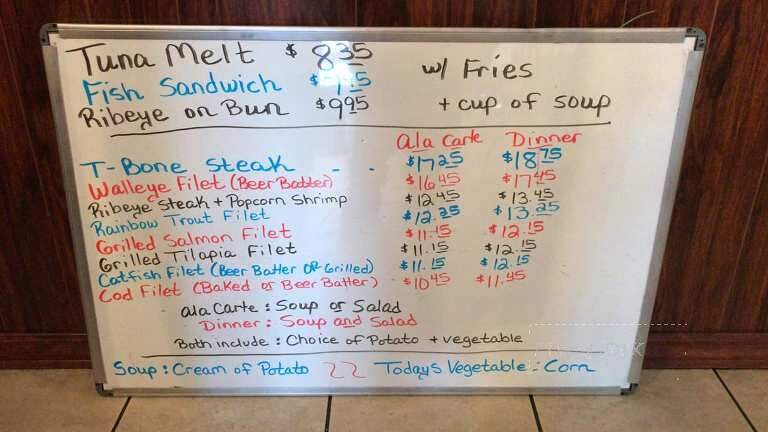 Tuna Melt $8.35
Fish Sandwich
Ribeye on Bun $9.95
w/ Fries
+ cup of soup
ala Carte Dinner
T-Bone Steak - - $17.25 $18.75
Walleye Filet (Beer Batter) $16.45 $17.45
Ribeye Steak + Popcorn Shrimp $12.45 $13.45
Rainbow Trout Filet $12.25 $13.25
Grilled Salmon Filet $11.15 $12.15
Grilled Tilapia Filet $11.15 $12.15
Catfish Filet (Beer Batter OR Grilled) $11.15 $12.15
Cod Filet (Baked or Beer Batter) $10.45 $11.45
ala Carte : Soup or Salad
Dinner : Soup and Salad
Both include : Choice of Potato + vegetable
Soup : Cream of Potato
Todays Vegetable : Corn